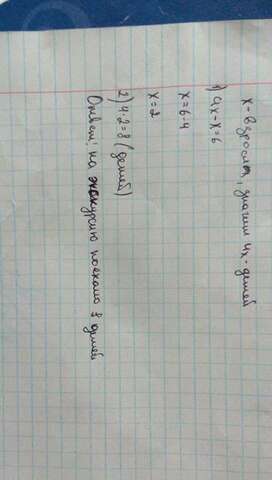 х - взрослых, значит 4х - детей
1) 4х-х=6
х=6-4
х=2
2) 4·2=8 (детей)
Ответ: на экскурсию поехало 8 детей